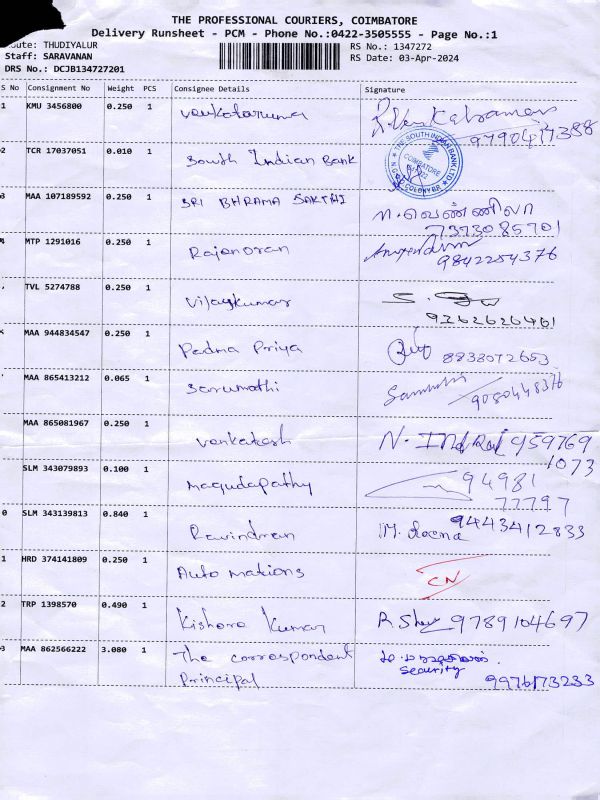 THE PROFESSIONAL COURIERS, COIMBATORE
Delivery Runsheet - PCM - Phone No.:0422-3505555 - Page No.:1
oute: THUDIYALUR RS No.: 1347272
Staff: SARAVANAN RS Date: 03-Apr-2024
DRS No.: DCJB134727201
S No Consignment No Weight PCS Consignee Details Signature
1 KMU 3456800 0.250 1 Venkataruma
9790417388
2 TCR 17037051 0.010 1 South Indian Bank
THE SOUTH INDIAN BANK LTD.
COIMBATORE
N G G O COLONY BR.
3 MAA 107189592 0.250 1 SRI BHRAMA SAKTHI ா.வெண்ணிலா
7373085701
MTP 1291016 0.250 1 Rajendran
9842254376
TVL 5274788 0.250 1 Vijaykumar
9362626401
MAA 944834547 0.250 1 Padma Priya 8838072653
MAA 865413212 0.065 1 Sarumathi
9080448376
MAA 865081967 0.250 1 Venkatesh N. INdRaj 959769
1073
SLM 343079893 0.100 1 Magudapathy 94981
77797
0 SLM 343139813 0.840 1 Ravindran M. Reena 9443412833
1 HRD 374141809 0.250 1 Auto mations CN
2 TRP 1398570 0.490 1 Kishore Kumar 9789104697
3 MAA 862566222 3.080 1 The correspondent
Principal Security 9976173233